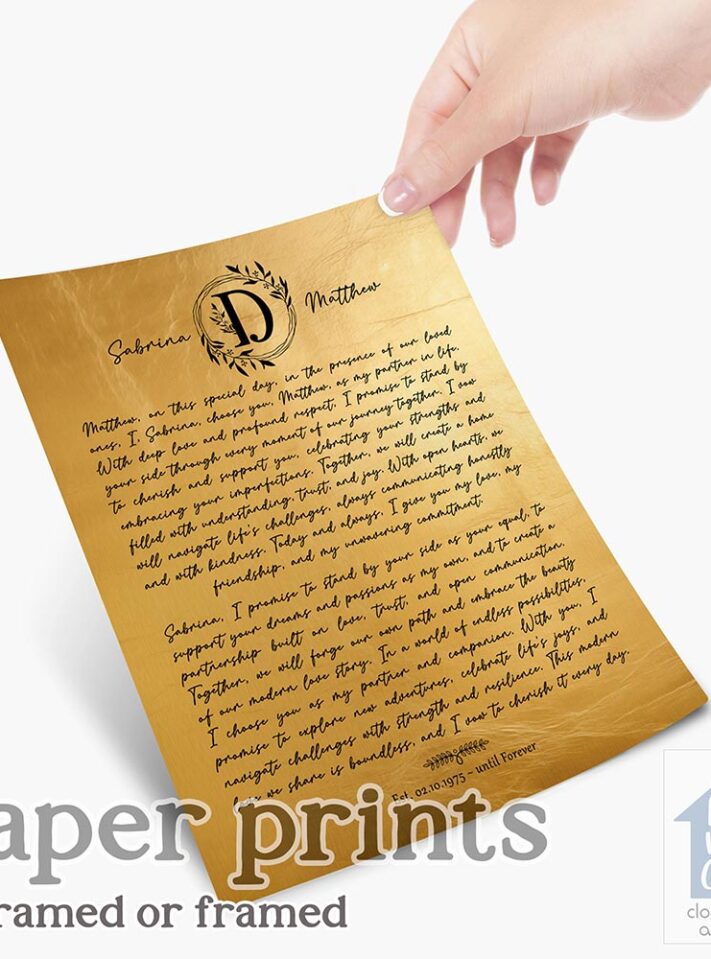 Sabrina D Matthew
Matthew, on this special day, in the presence of our loved
ones, I, Sabrina, choose you, Matthew, as my partner in life.
With deep love and profound respect, I promise to stand by
your side through every moment of our journey together. I vow
to cherish and support you, celebrating your strengths and
embracing your imperfections. Together, we will create a home
filled with understanding, trust, and joy. With open hearts, we
will navigate life's challenges, always communicating honestly
and with kindness. Today and always, I give you my love, my
friendship, and my unwavering commitment.
Sabrina, I promise to stand by your side as your equal, to
support your dreams and passions as my own, and to create a
partnership built on love, trust, and open communication.
Together, we will forge our own path and embrace the beauty
of our modern love story. In a world of endless possibilities,
I choose you as my partner and companion. With you, I
promise to explore new adventures, celebrate life's joys, and
navigate challenges with strength and resilience. This modern
love we share is boundless, and I vow to cherish it every day.
Est. 02.10.1975 ~ until Forever
aper prints
ramed or framed
clo
a